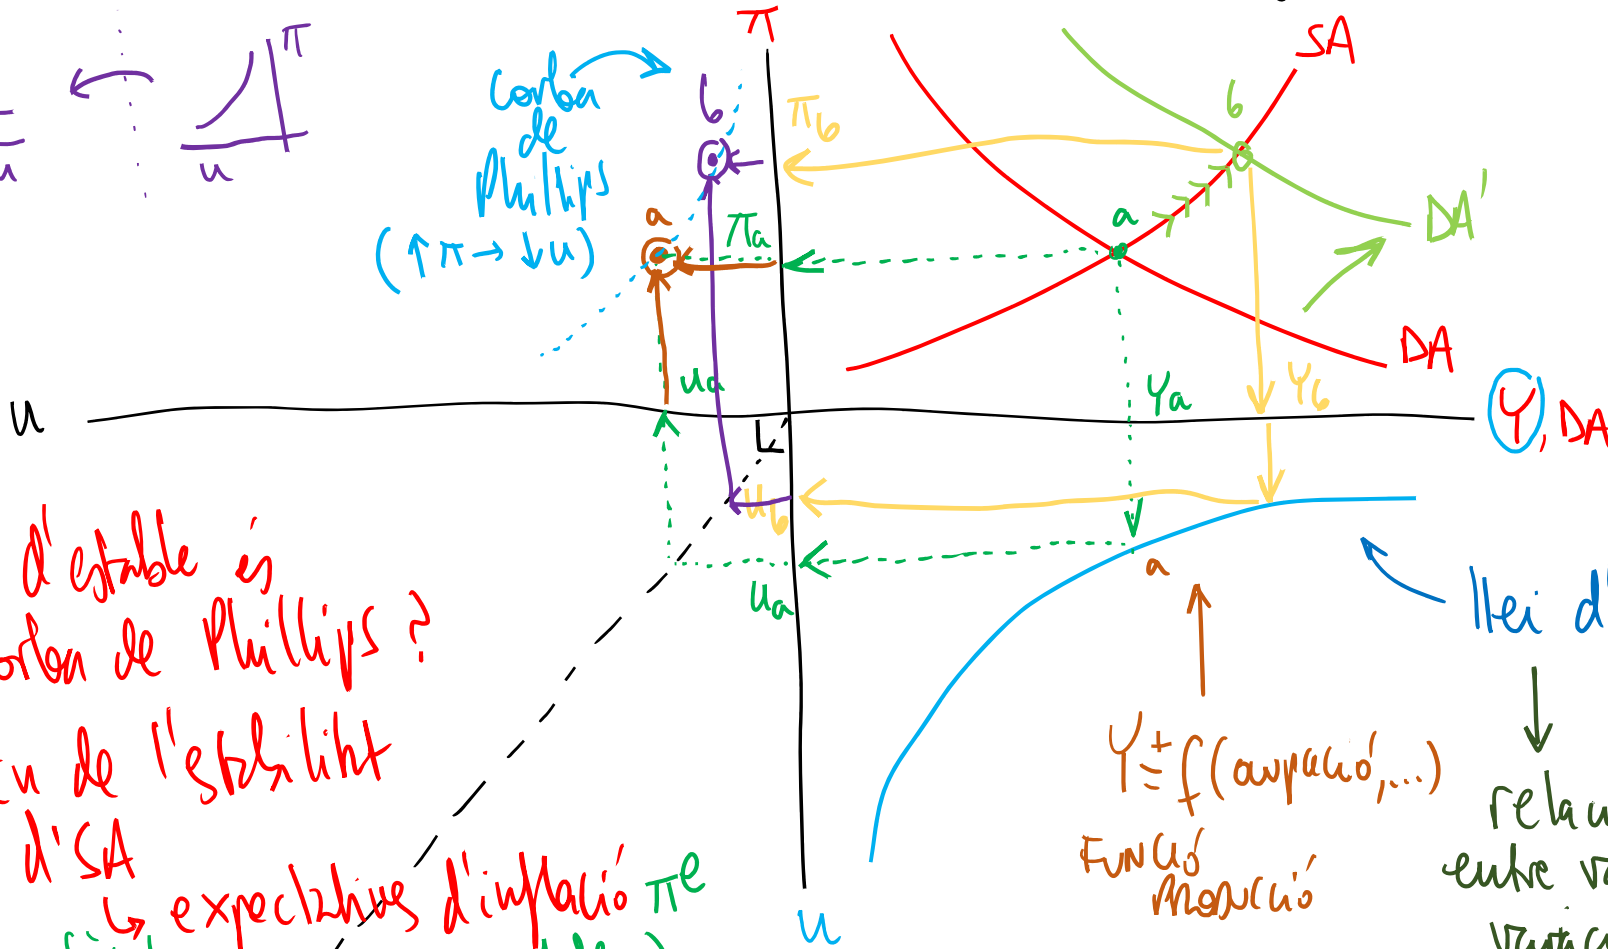 π
u
u
Corba
de
Phillips
(↑π → ↓u)
π
b
π_b
a
π_a
SA
b
a
DA'
DA
u
u_a
Y_a
Y_b
Y, DA
u_b
u_a
a
llei d'
d'estable és
de Phillips ?
de l'estabilitat
d'SA
↳ expectatives d'inflació π^e
Y = f(ocupació,...)
FUNCIÓ
PRODUCCIÓ
entre
u